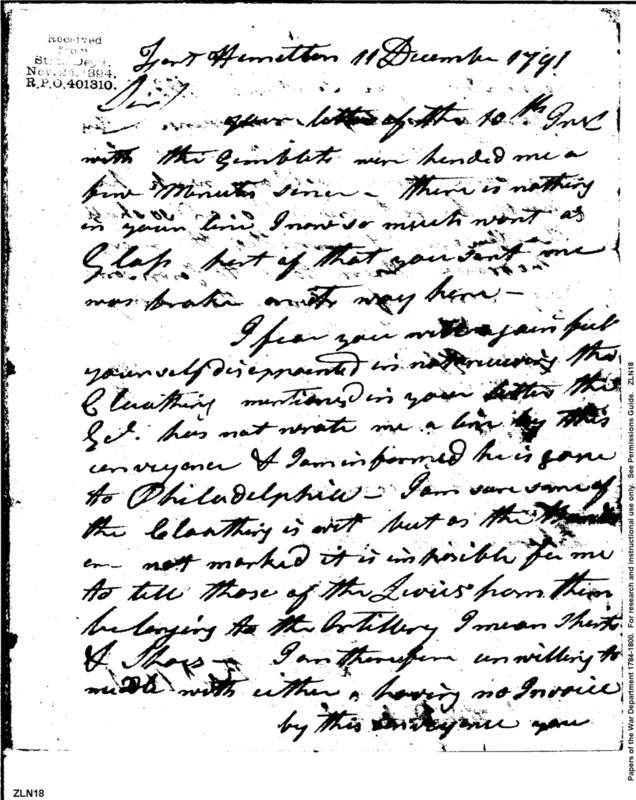 Received
from
State Dept.
Nov. 24, 1894.
R.P.O. 401310.
Fort Hamelton 11 December 1791
Sir
your letter of the 10th Inst
with the Gimblets were handed me a
few Minutes since - there is nothing
in your line I now so much want as
Glass part of that you sent me
was broke on its way here -
I fear you will again feel
yourself disappointed in not receiving the
Cloathing mentioned in your letter the
has not wrote me a line by this
conveyance & I am informed he is gone
to Philadelphia - I am sure some of
the Cloathing is out but as the
are not marked it is impossible for me
to tell those of the Levies from them
belonging to the Artillery I mean Shirts
& Shoes - I am therefore unwilling to
meddle with either, having no Invoice
by this conveyance you
Papers of the War Department 1784-1800. For research and instructional use only. See Permissions Guide. ZLN18
ZLN18